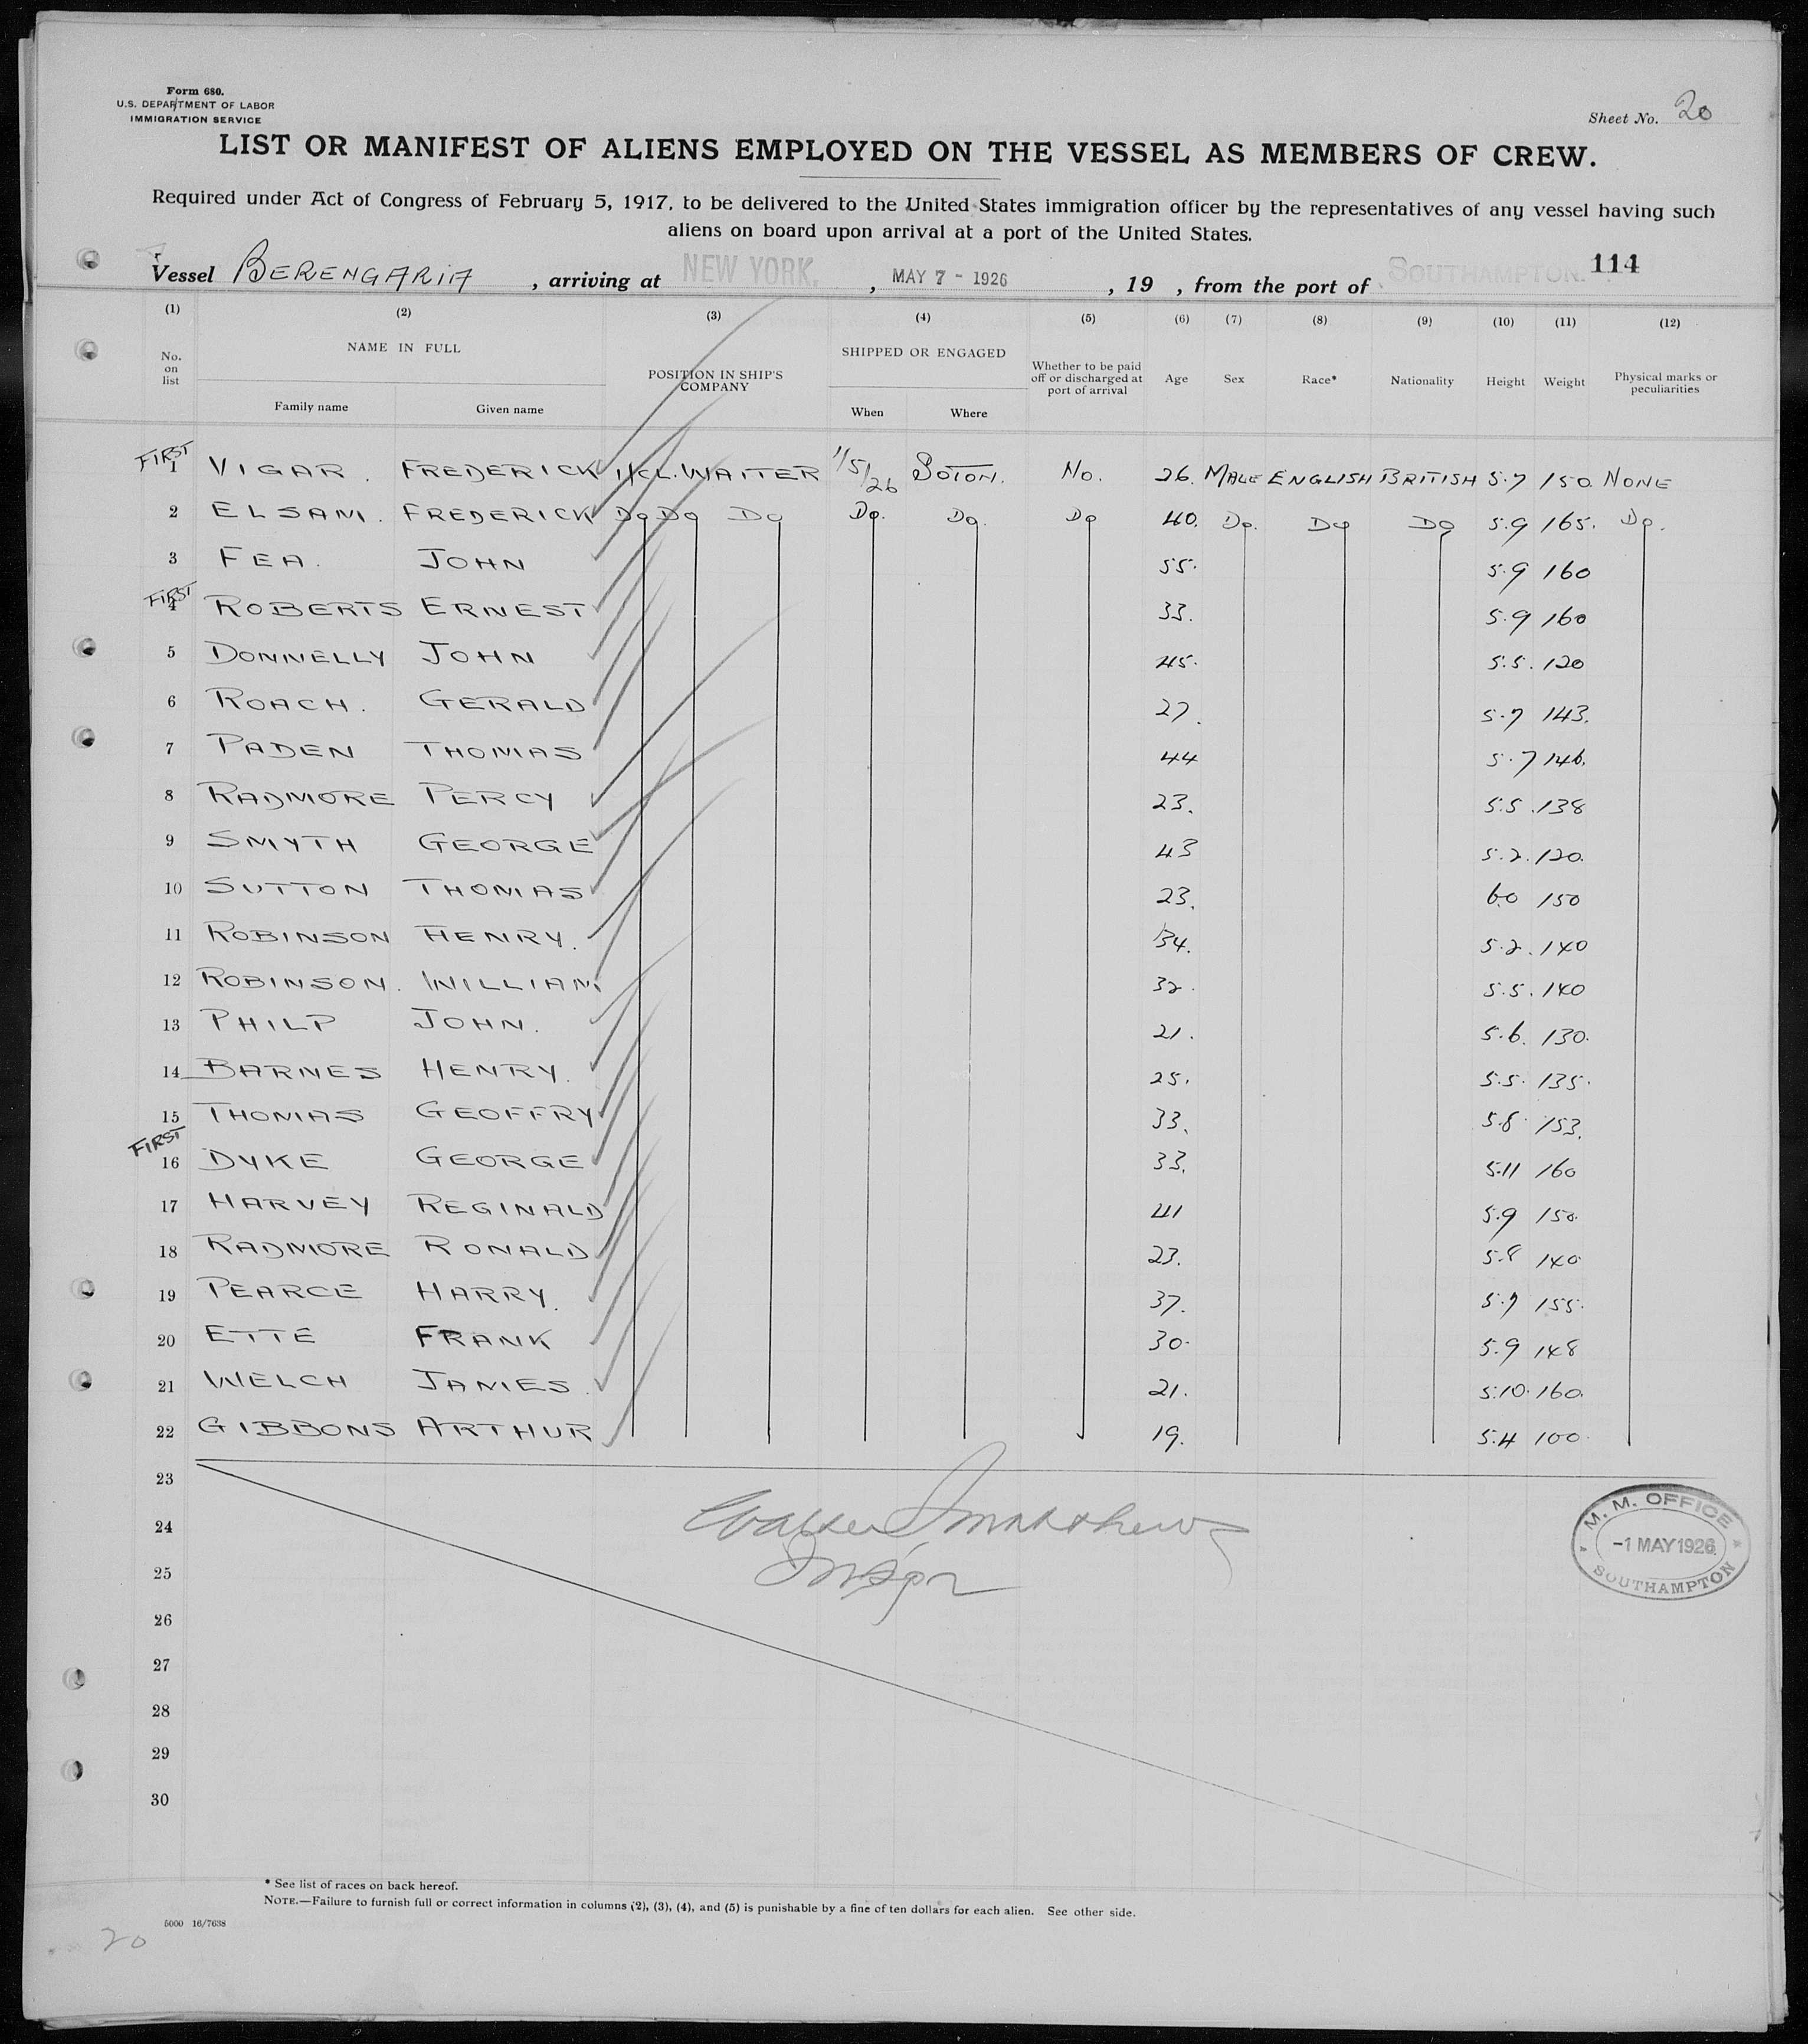 Form 680.
U.S. DEPARTMENT OF LABOR
IMMIGRATION SERVICE
Sheet No. 20
LIST OR MANIFEST OF ALIENS EMPLOYED ON THE VESSEL AS MEMBERS OF CREW.
Required under Act of Congress of February 5, 1917, to be delivered to the United States immigration officer by the representatives of any vessel having such
aliens on board upon arrival at a port of the United States.
114
Vessel BERENGARIA , arriving at NEW YORK. , MAY 7 - 1926 , 19 , from the port of SOUTHAMPTON.
(1) (2) (3) (4) (5) (6) (7) (8) (9) (10) (11) (12)
No. on list NAME IN FULL POSITION IN SHIP'S COMPANY SHIPPED OR ENGAGED Whether to be paid off or discharged at port of arrival Age Sex Race* Nationality Height Weight Physical marks or peculiarities
Family name Given name When Where
FIRST
1 VIGAR. FREDERICK 1/CL. WAITER 1/5/26 SOTON. No. 26. MALE ENGLISH BRITISH 5.7 150 NONE
2 ELSAM. FREDERICK Do Do Do Do. Do. Do 40. Do. Do Do 5.9 165. Do.
3 FEA. JOHN 55. 5.9 160
FIRST
4 ROBERTS ERNEST 33. 5.9 160
5 DONNELLY JOHN 45. 5.5. 120
6 ROACH. GERALD 27. 5.7 143.
7 PADEN THOMAS 44 5.7 146.
8 RADMORE PERCY 23. 5.5 138
9 SMYTH GEORGE 43 5.2. 120.
10 SUTTON THOMAS 23. 6.0 150
11 ROBINSON HENRY. 34. 5.2. 140
12 ROBINSON. WILLIAM 32. 5.5. 140
13 PHILP JOHN. 21. 5.6. 130.
14 BARNES HENRY. 25. 5.5. 135.
15 THOMAS GEOFFRY 33. 5.8. 153.
FIRST
16 DYKE GEORGE 33. 5.11 160
17 HARVEY REGINALD 41 5.9 150.
18 RADMORE RONALD 23. 5.8 140
19 PEARCE HARRY. 37. 5.7 155.
20 ETTE FRANK 30. 5.9 148
21 WELCH JAMES. 21. 5.10. 160.
22 GIBBONS ARTHUR 19. 5.4 100.
23
24
25
26
27
28
29
30
M. M. OFFICE
-1 MAY 1926
SOUTHAMPTON
* See list of races on back hereof.
NOTE.—Failure to furnish full or correct information in columns (2), (3), (4), and (5) is punishable by a fine of ten dollars for each alien. See other side.
5000 16/7638
20